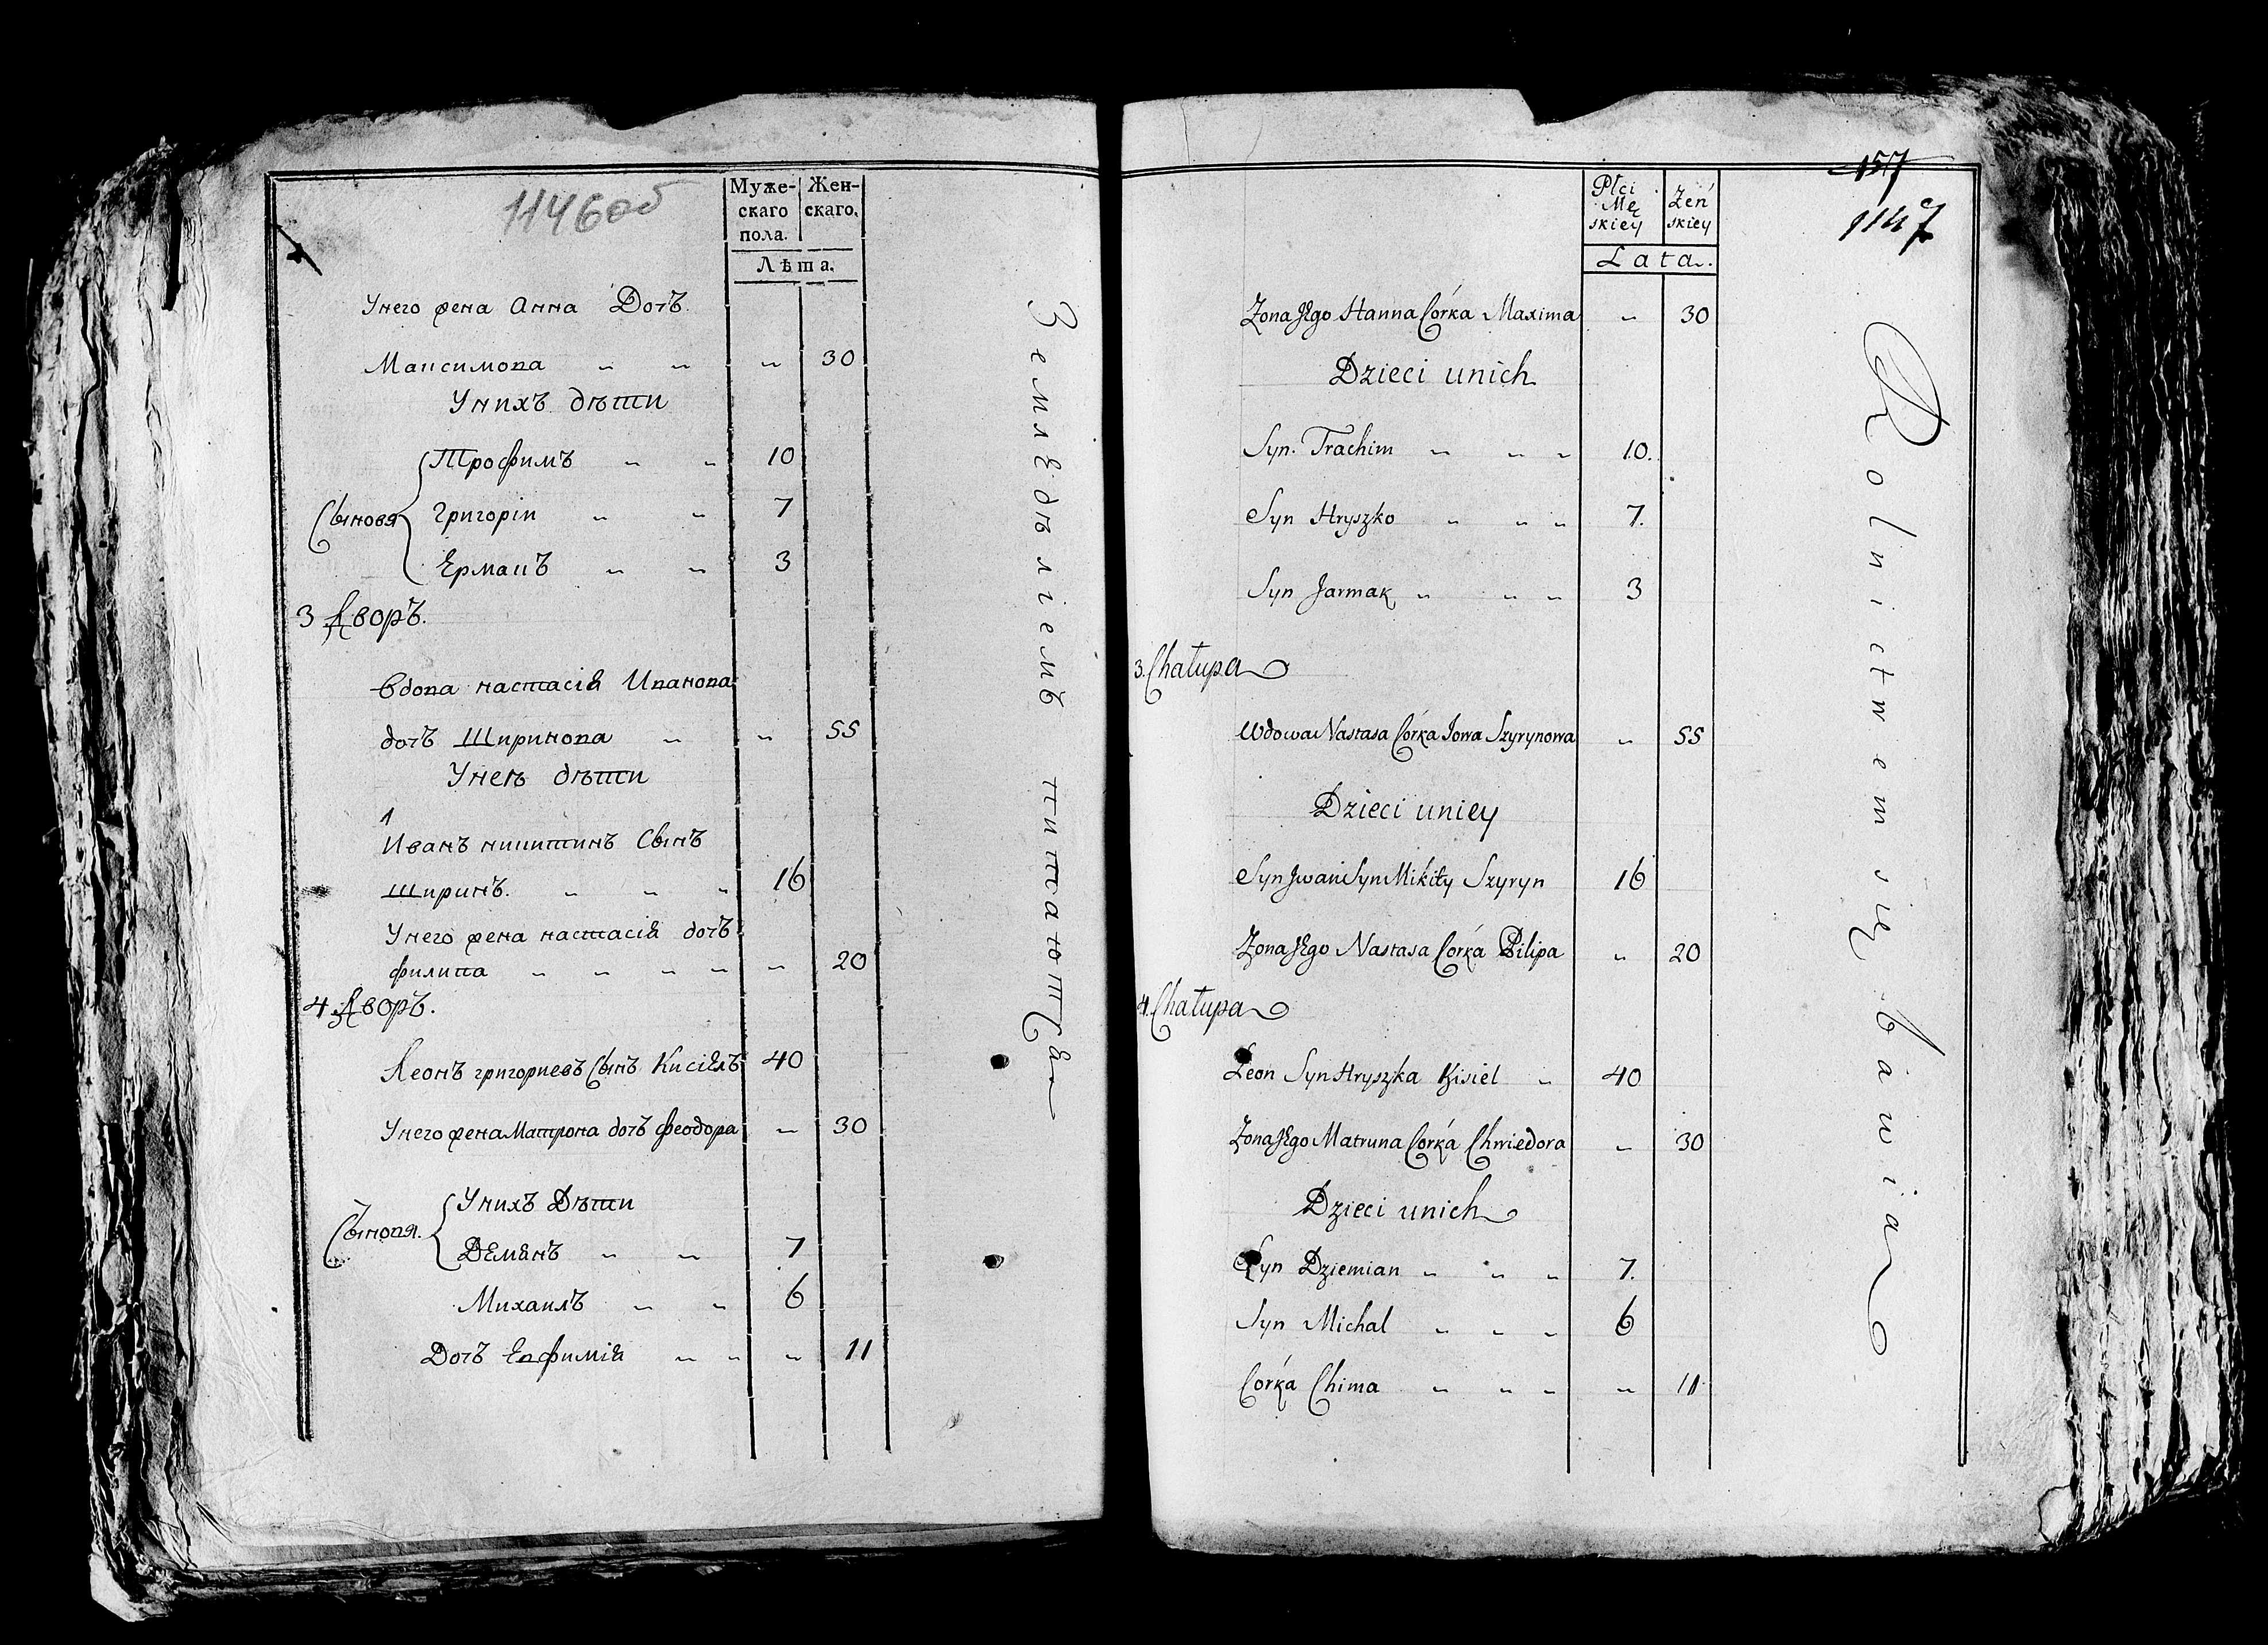 1146об
Муже-
скаго
пола.
Жен-
скаго.
Лѣта.
Унего жена Анна Дочъ
Максимова " " " 30
Унихъ дѣти
Сыновя
Трофимъ " " 10
Григоріи " " 7
Ермакъ " " 3
3 Дворъ.
Вдова настасія Иванова
дочъ Ширинова " " 55
Унеѣ дѣти
1
Иванъ никитинъ Сынъ
Ширинъ. " " " 16
Унего жена настасія дочъ
филипа " " " " " 20
4 Дворъ.
Леонъ григориевъ Сынъ Кисіелъ 40
Унего жена Матрона дочъ Феодора " 30
Унихъ Дѣти
Сыновя.
Демянъ " " 7
Михаилъ " " 6
Дочъ Евфимія " " " 11
Земледѣліемъ питаютца
157
1147
Płci
Mę
skiey
Żeń
skiey
Lata.
Żona Jego Hanna Córka Maxima " 30
Dzieci unich
Syn. Trachim " " " 10.
Syn Hryszko " " " 7.
Syn Jarmak " " " 3
3. Chałupa
Wdowa Nastasa Córka Jowa Szyrynowa " 55
Dzieci uniey
Syn Jwan Syn Mikity Szyryn 16
Żona Jego Nastasa Corka Pilipa " 20
4. Chałupa
Leon Syn Hryszka Kisiel " 40
Żona Jego Matruna Corka Chwiedora " 30
Dzieci unich
Syn Dziemian " " " 7.
Syn Michal " " " 6
Córka Chima " " " " 11
Rolnictwem się bawią